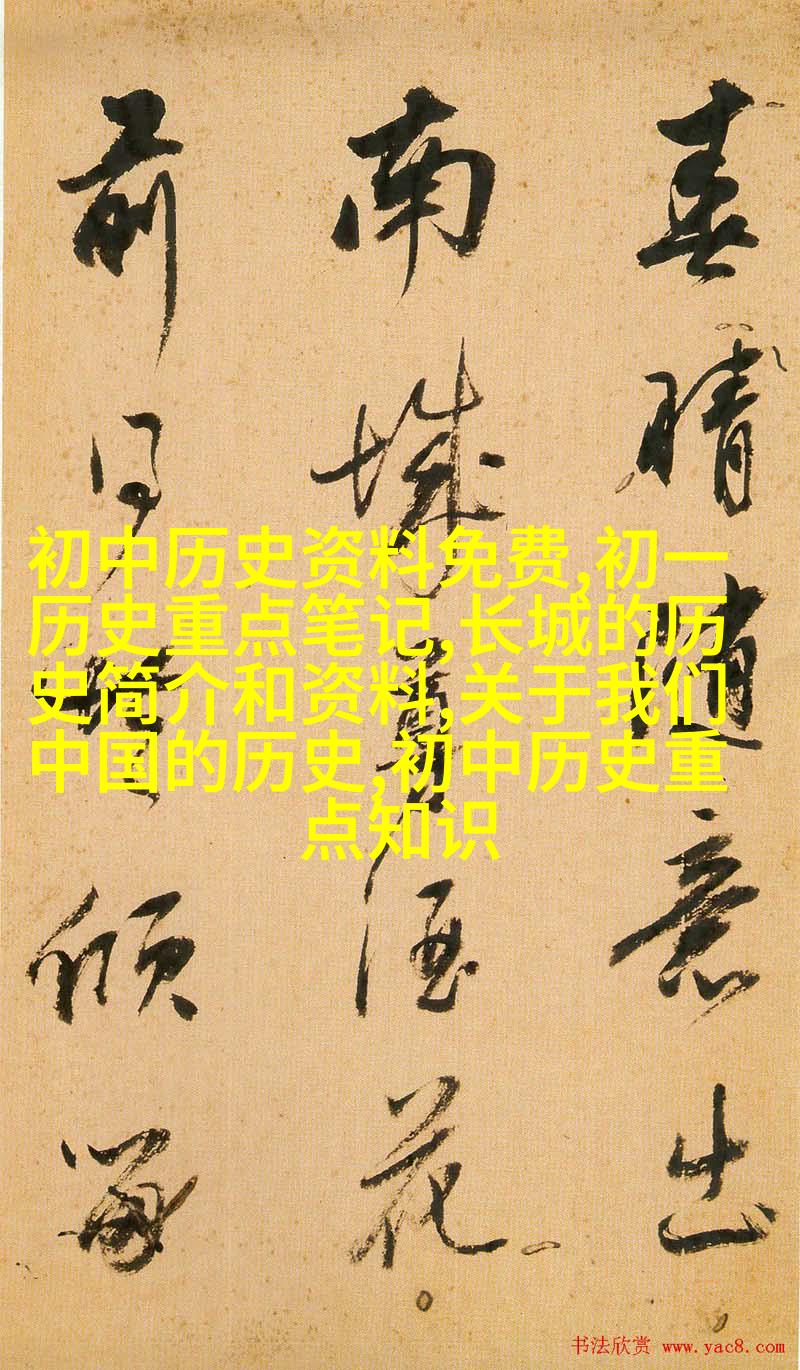 春晴隨意出
南城酒花
前傾
初中历史资料免费,初一
历史重点笔记,长城的历
史简介和资料,关于我们
中国的历史,初中历史重
点知识
书法欣赏 www.yac8.com